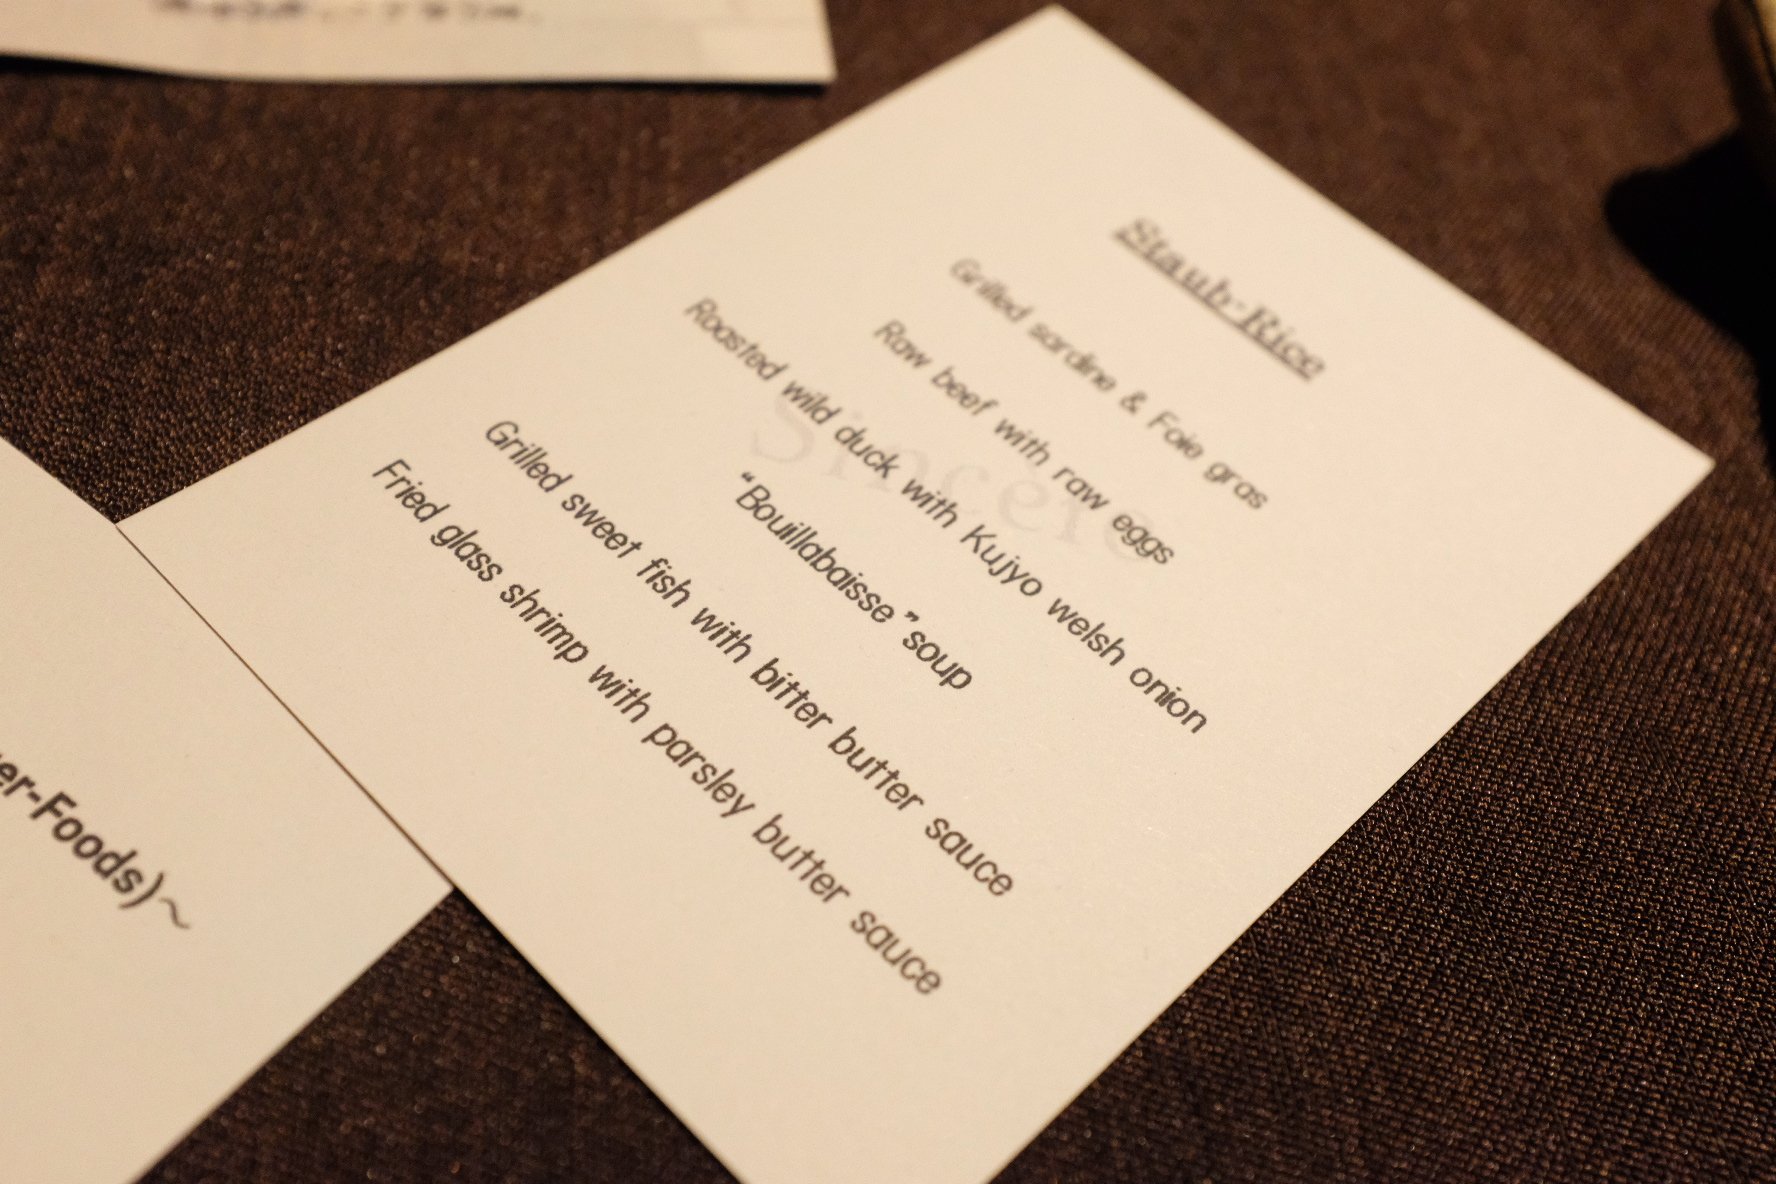 Staub-Rice
Grilled sardine & Foie gras
Raw beef with raw eggs
Roasted wild duck with Kujyo welsh onion
“Bouillabaisse ”soup
Grilled sweet fish with bitter butter sauce
Fried glass shrimp with parsley butter sauce
Sincere
er-Foods)~